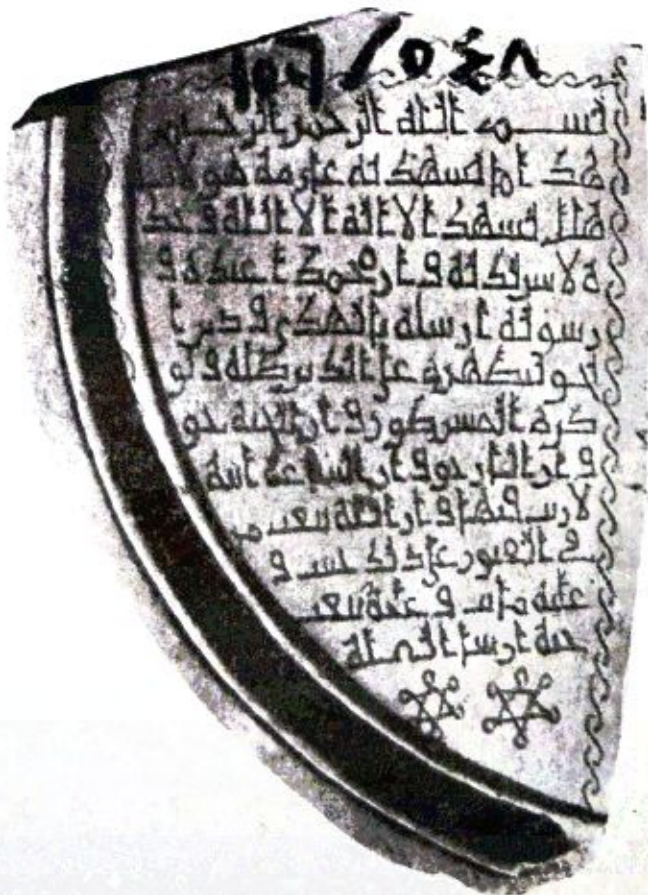 ١٥٦/٥٤٨
بسم الله الرحمن الرحيم
هذا ما تشهد به
تشهد الا اله الا الله وحد
ه لا شريك له وان محمدا عبده و
رسوله ارسله بالهدى ودين ا
لحق ليظهره على الدين كله ولو
كره المشركون وان الجنة حق
وان النار حق وان الساعة اتية
لا ريب فيها وان الله يبعث من
في القبور على ذلك حييت و
عليه ماتت وعليه تبعث
حية ان شا الله